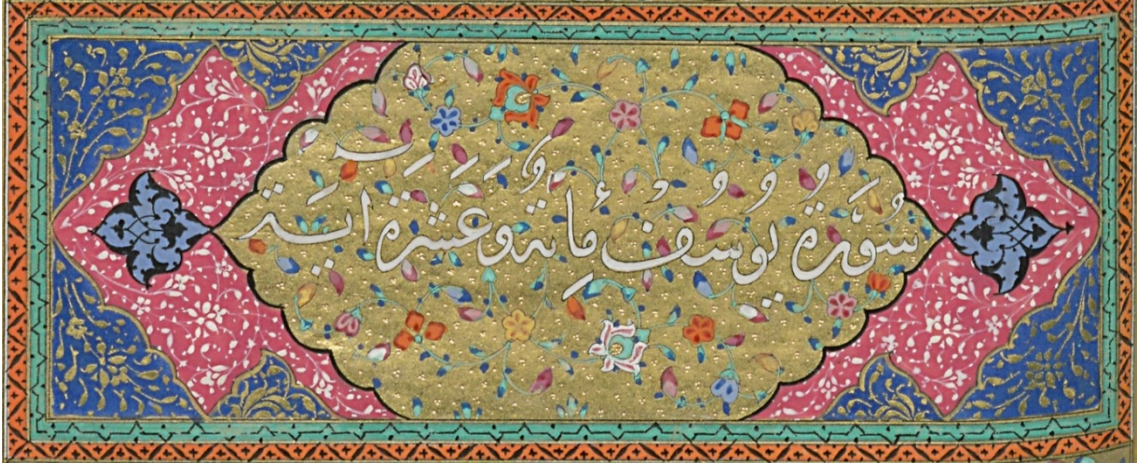 سُورَةُ يُوسُفْ مِأئَةٌ وَعَشَرَةَ ايَت